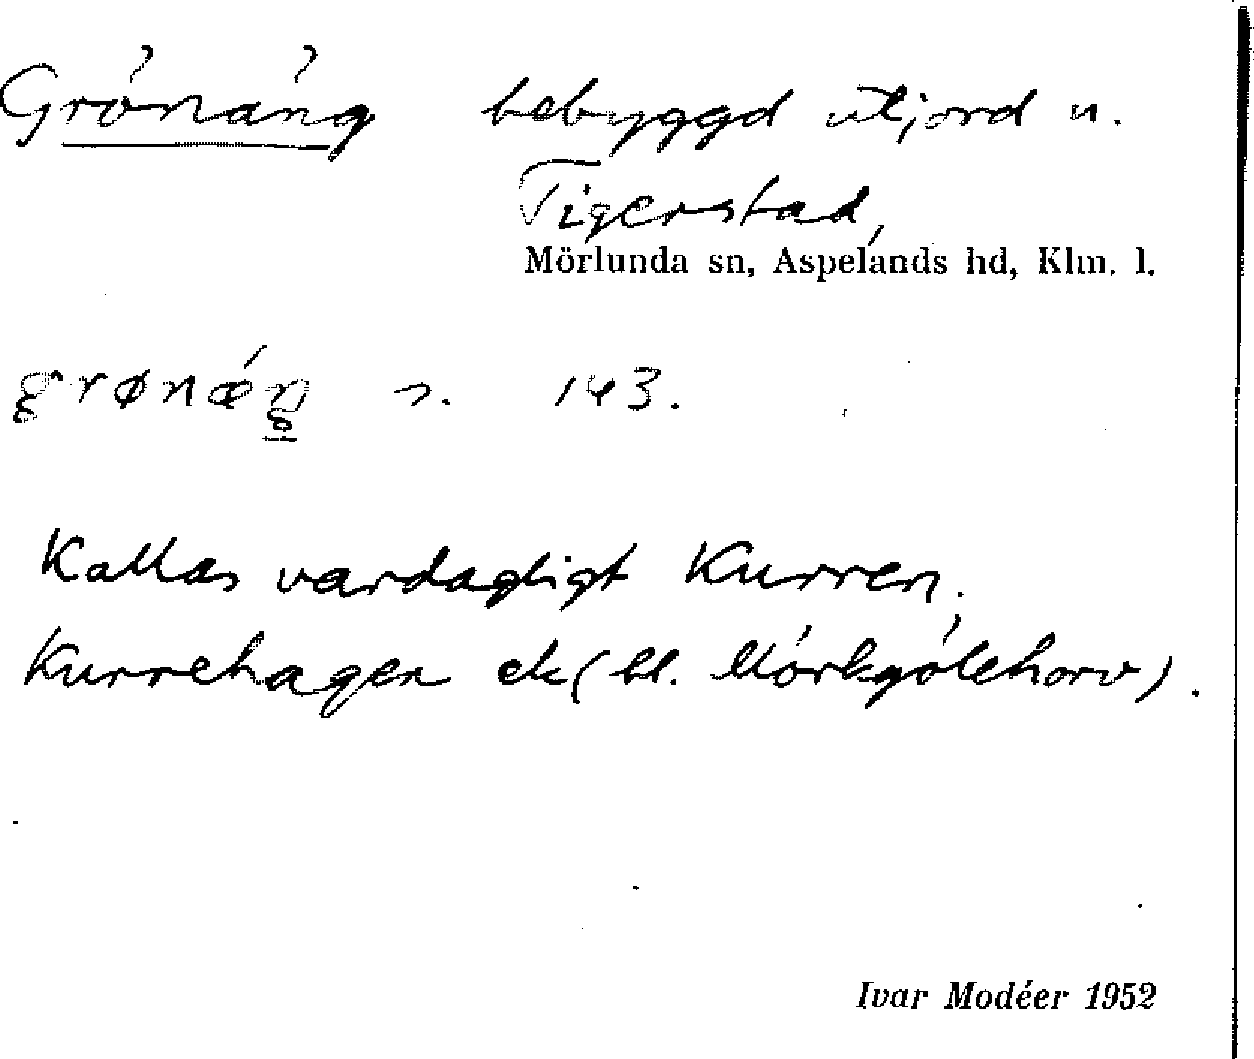 Grönäng bebyggd utjord u.
Tigerstad,
Mörlunda sn, Aspelands hd, Klm. l.
grønǽŋ n. 143.
Kallas vardagligt Kurren,
Kurrehagen ek( bl. Mörkgölehorv).
Ivar Modéer 1952